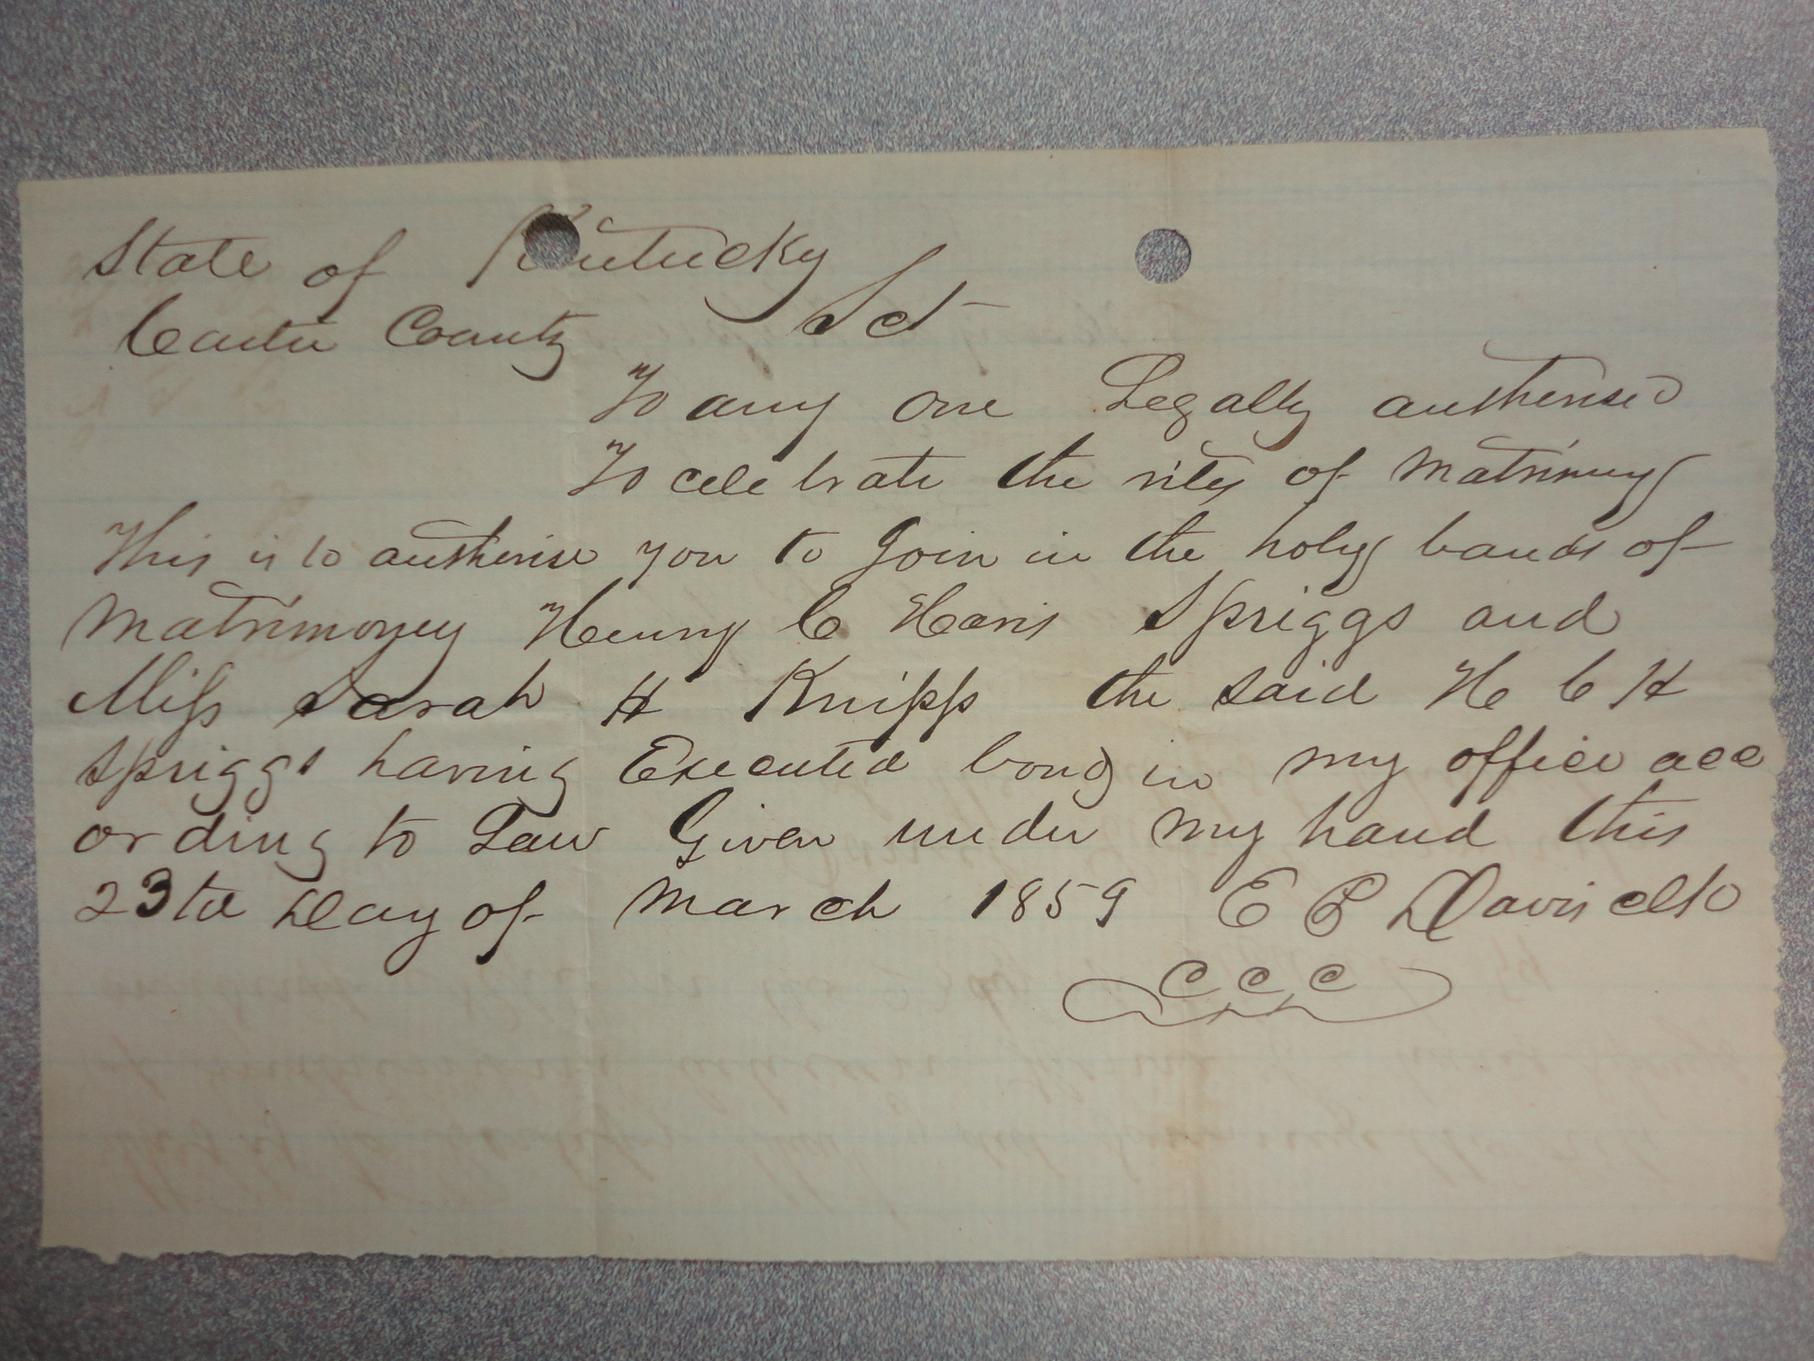 State of Kentucky
Carter County Sct
To any one Legally autherised
To celebrate the rites of Matrimony
This is to autherise you to Join in the holy bands of
Matrimoney Henry C Haris Spriggs and
Miss Sarah H Knipp the said H C H
Spriggs having Executed bond in my office acc
ording to Law Given under my hand this
23td Day of March 1859 E P Davis clk
C C C